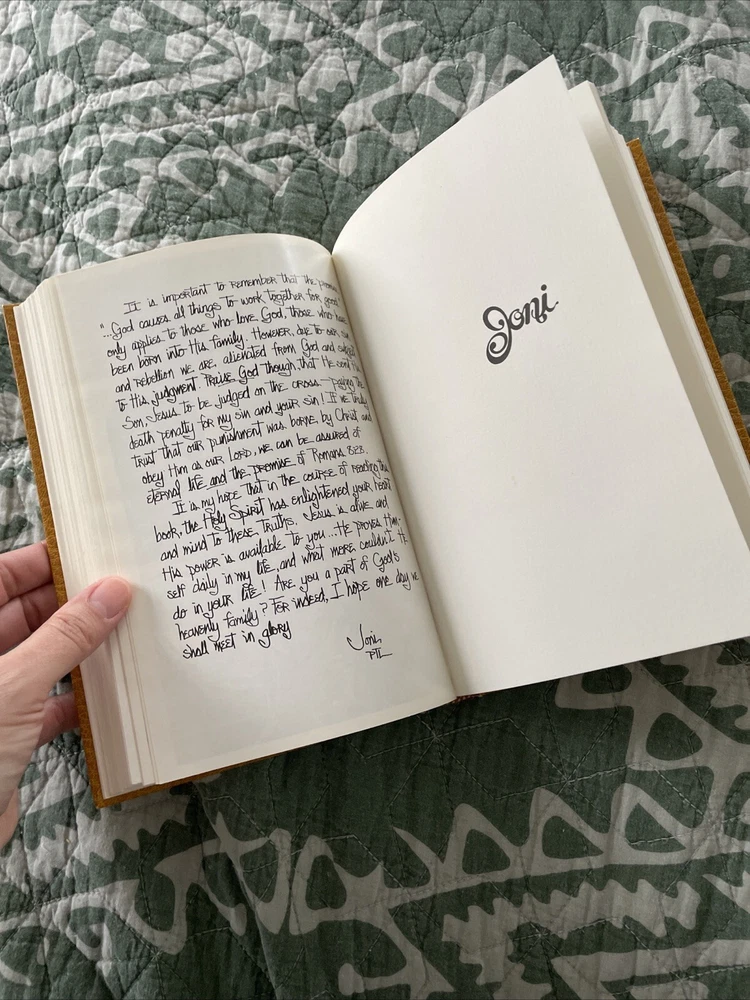 It is important to remember that the promise
"...God causes all things to work together for good"
only applies to those who love God, those who have
been born into His family. However, due to our sin
and rebellion we are alienated from God and subject
to His judgment. Praise God though that He sent His
Son, Jesus to be judged on the cross — paying the
death penalty for my sin and your sin! If we truly
trust that our punishment was borne by Christ and
obey Him as our Lord, we can be assured of
eternal life and the promise of Romans 8:28.
It is my hope that in the course of reading this
book, the Holy Spirit has enlightened your heart
and mind to these truths. Jesus is alive and
His power is available to you... He proves Him-
self daily in my life, and what more couldn't He
do in your life! Are you a part of God's
heavenly family? For indeed, I hope one day we
shall meet in glory
Joni
PTL
Joni